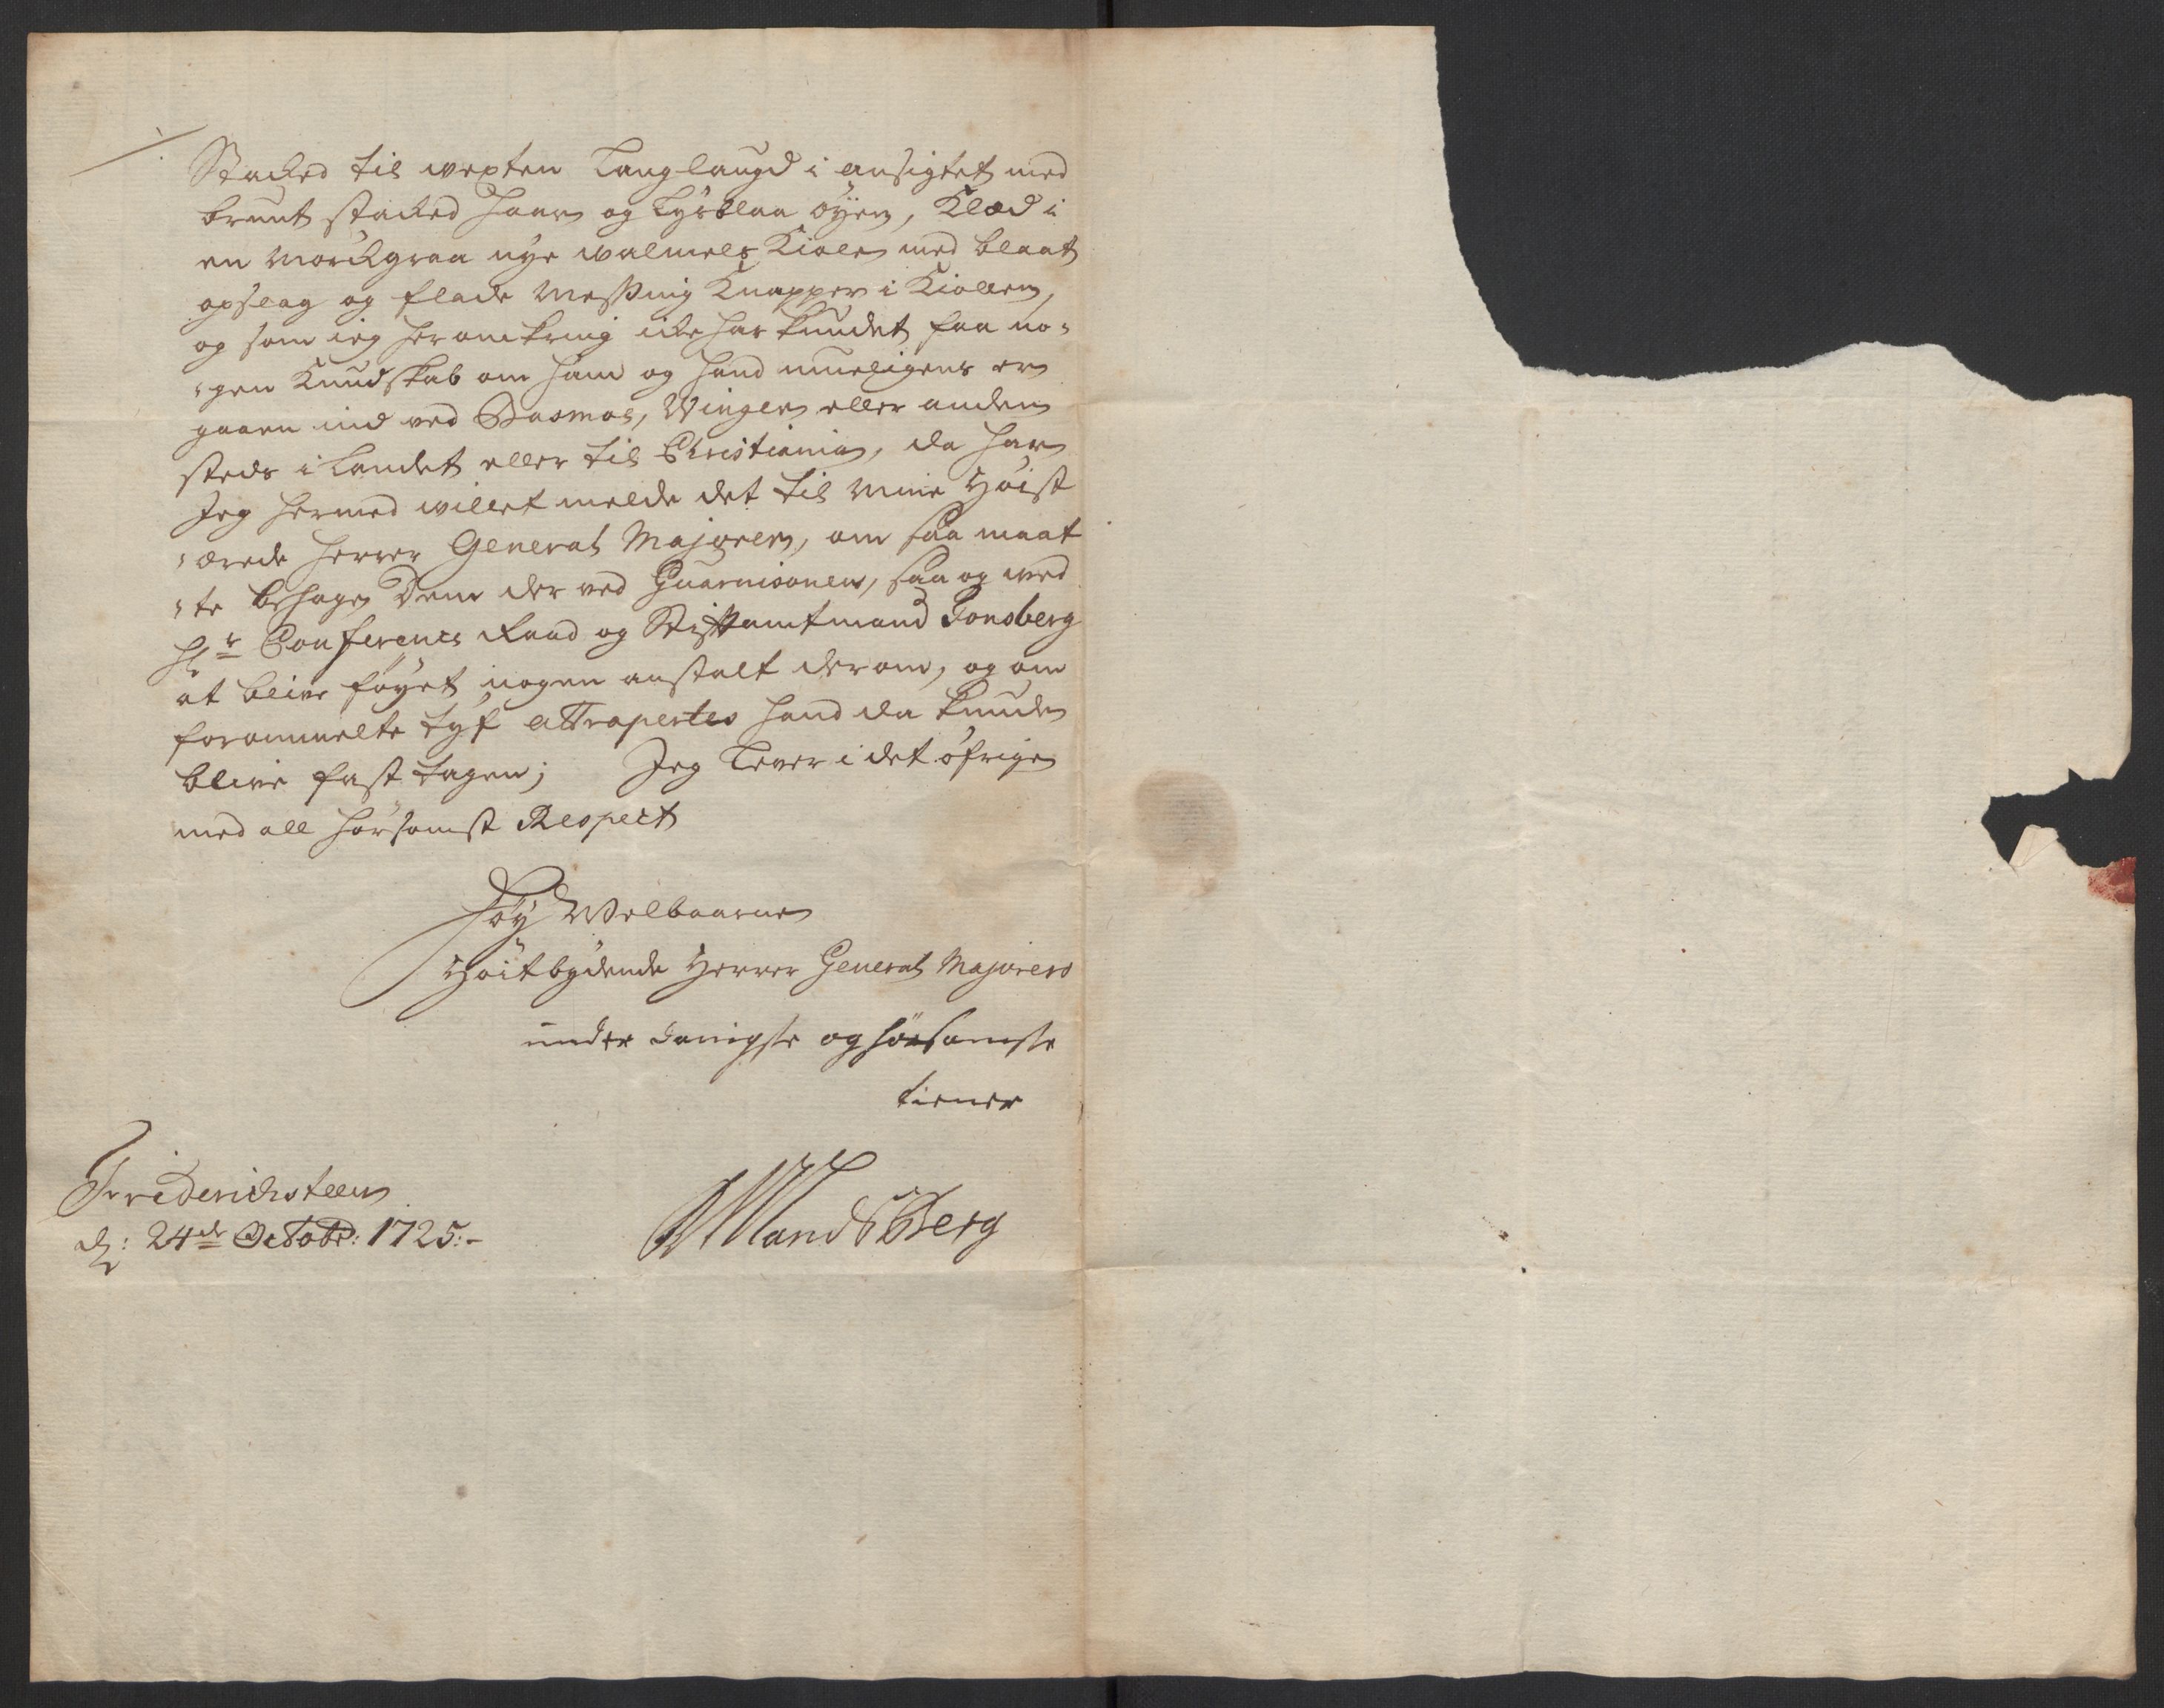 Stacked til wexten Langlaugd i ansigtet med
brunt stacked Haar og Lysblaa öÿen, Klæd i
en Mörckgraa nye walmels Kiole med blaat
opslag og flade Messing Knapper i Kiollen,
og som ieg her omkring icke har kundet faa no-
-gen Kundskab om ham og hand mueligens er
gaaen ind ved Basmoe, Winger eller anden
steds i Landet eller til Christiania, da har
Jeg hermed willet melde det til Min Höist
-ærede Herrer General Majoren, om saa maat
-te behage Dem der ved Guarnisonen, saa og wed
Hr Conferencs Raad og Stiftamtmand Tonsberg
at blive föyet nogen anstalt derom, og om
forommelte Tyf attrapertes hand da kunde
blive fast tagen; Jeg Lever i det öfrige
med all hörsomst Respect
Höy Welbaarne
Höitbÿdende Herrer General Majorens
under danigste og hörsomste
tiener
Friderichsteen
d: 24de Octobr: 1725:-
Landsberg